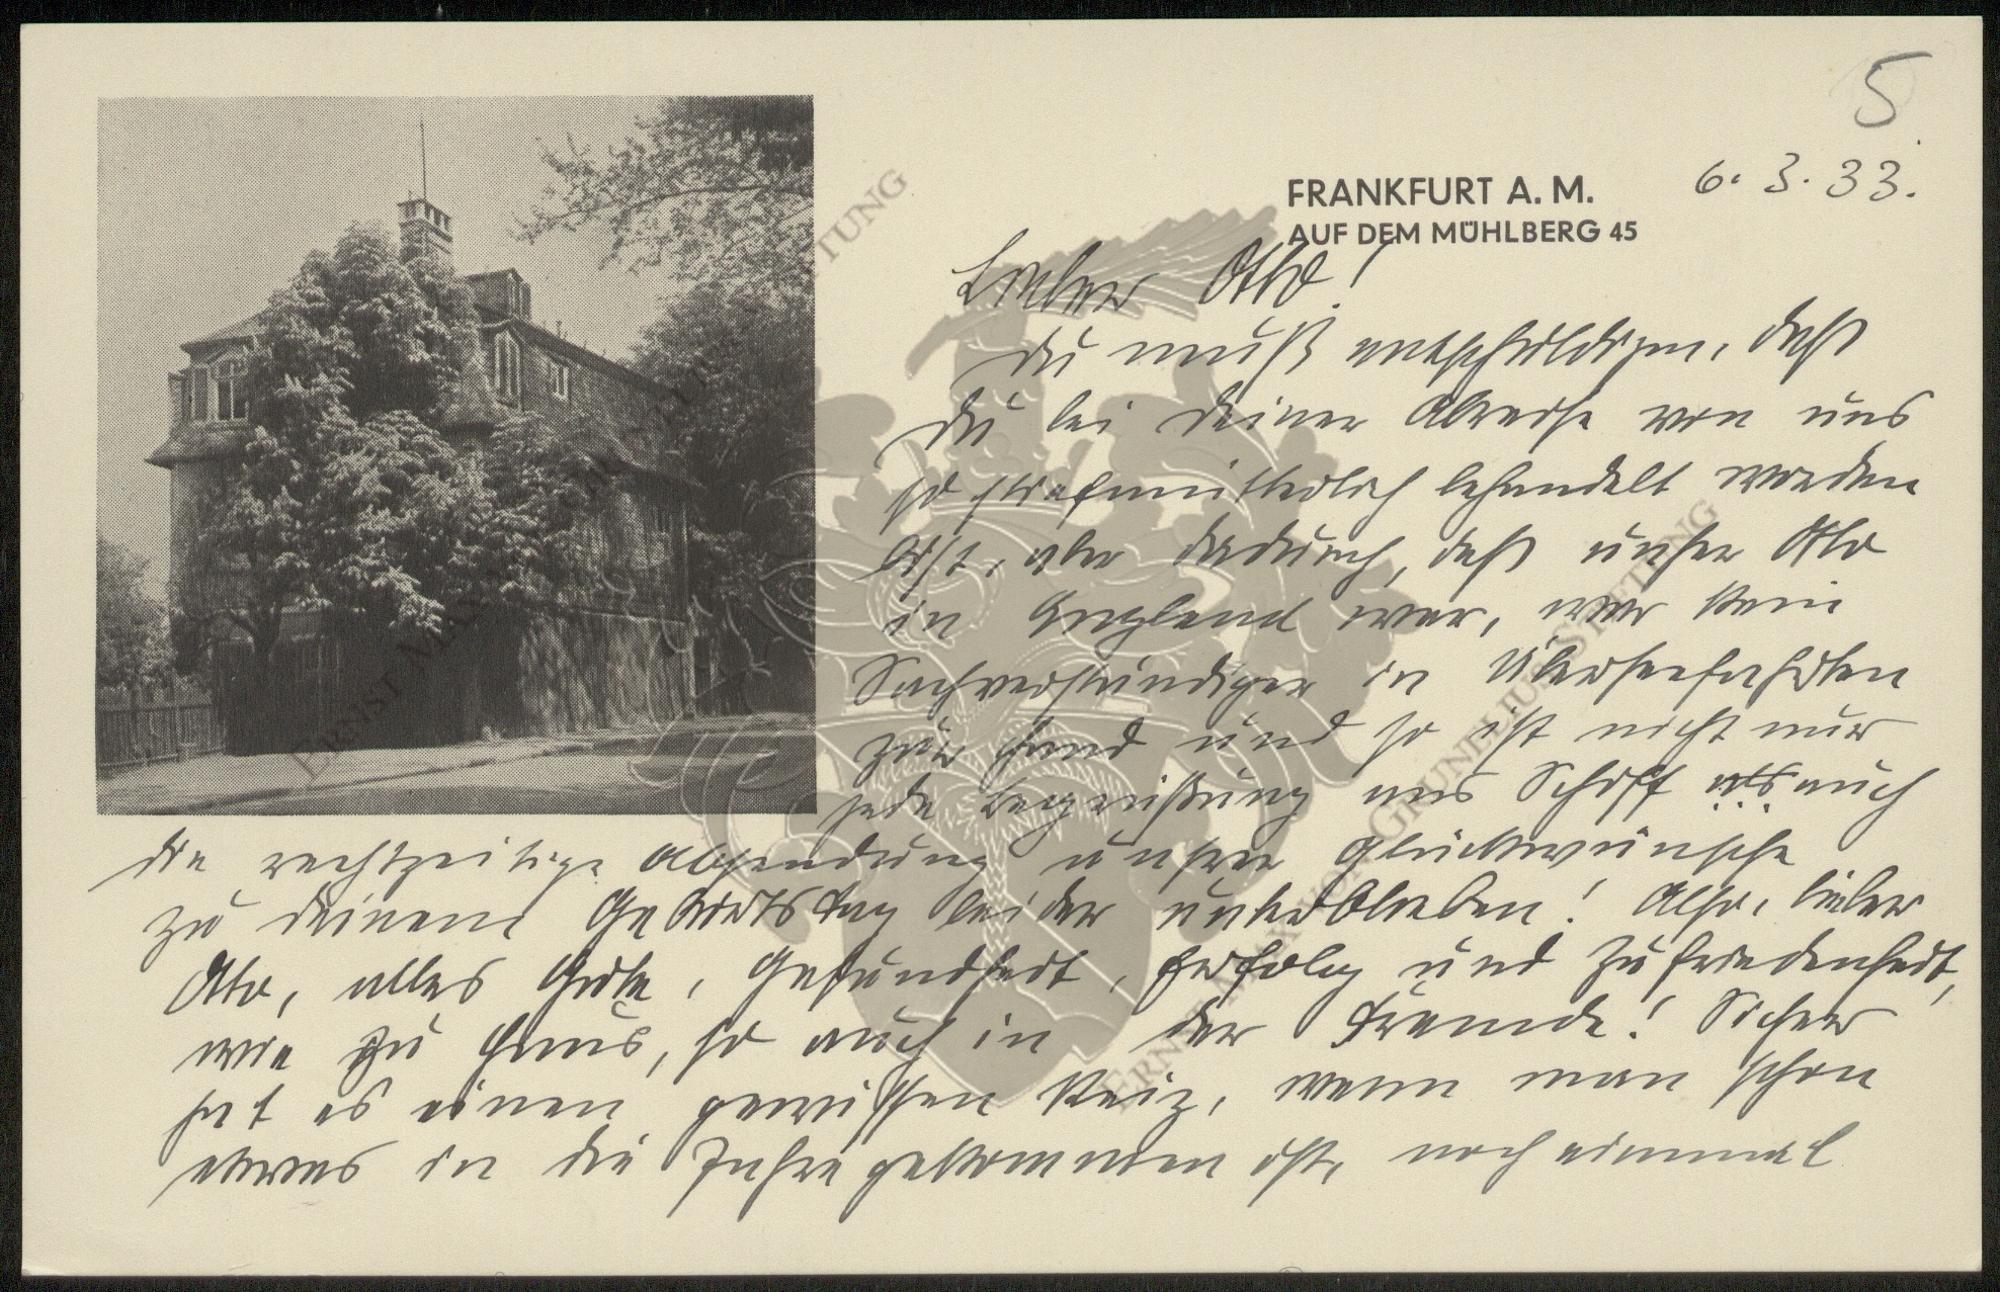 5
6. 3. 33.
FRANKFURT A. M.
AUF DEM MÜHLBERG 45
Lieber Otto!
Du muß entschuldigen, daß
Du bei Deiner Abreise von uns
so stiefmütterlich behandelt worden
bist, aber dadurch, daß unser Otto
in England war, war kein
Sachverständiger in Überseefahrten
zur Hand und so ist nicht nur
jede Begrüßung ans Schiff als auch
die rechtzeitige Absendung unsrer Glückwünsche
zu deinem Geburtstag leider unterblieben! Also, lieber
Otto, alles Gute, Gesundheit, Erfolg und Zufriedenheit,
wie zu Haus, so auch in der Fremde! Sicher
hat es einen gewissen Reiz, wenn man schon
etwas in die Jahre gekommen ist, noch einmal
ERNST MAX VON GRUNELIUS STIFTUNG
ERNST MAX VON GRUNELIUS STIFTUNG